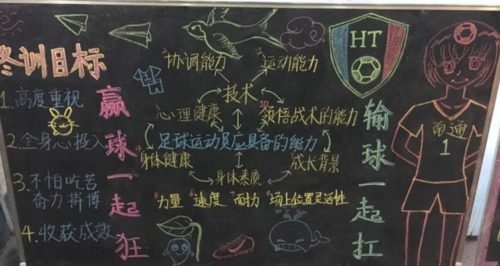 冬训目标
1.高度重视
2.全身心投入
3.不怕吃苦
奋力拼博
4.收获成效
赢球一起狂
协调能力
运动能力
技术
心理健康
领悟战术的能力
足球运动员应具备的能力
身体健康
成长背景
身体素质
力量
速度
耐力
场上位置灵活性
HT
输球一起扛
南通
1